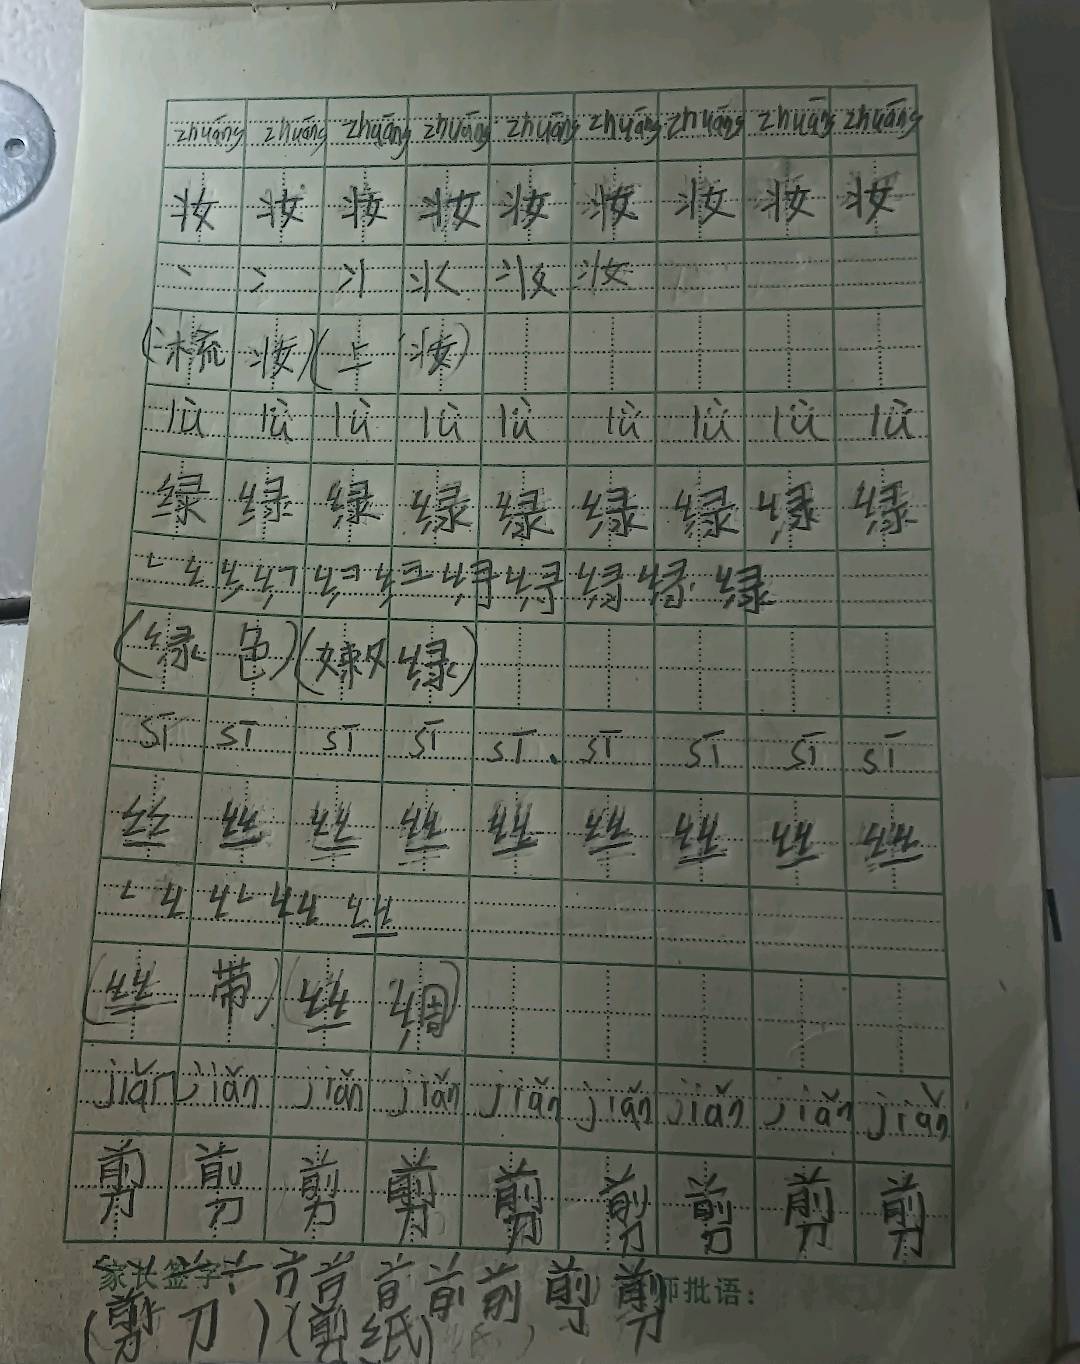 zhuāng zhuāng zhuāng zhuāng zhuāng zhuāng zhuāng zhuāng zhuāng
妆 妆 妆 妆 妆 妆 妆 妆 妆
丶 冫 丬 妆
(梳 妆)(上 妆)
lǜ lǜ lǜ lǜ lǜ lǜ lǜ lǜ lǜ
绿 绿 绿 绿 绿 绿 绿 绿 绿
纟 绿
(绿 色)( 绿)
sī sī sī sī sī sī sī sī sī
丝 丝 丝 丝 丝 丝 丝 丝 丝
丝
(丝 带)(丝 绸)
jiǎn jiǎn jiǎn jiǎn jiǎn jiǎn jiǎn jiǎn jiǎn
剪 剪 剪 剪 剪 剪 剪 剪 剪
家长签字: 前 剪 剪 师批语:
(剪 刀)(剪 纸)